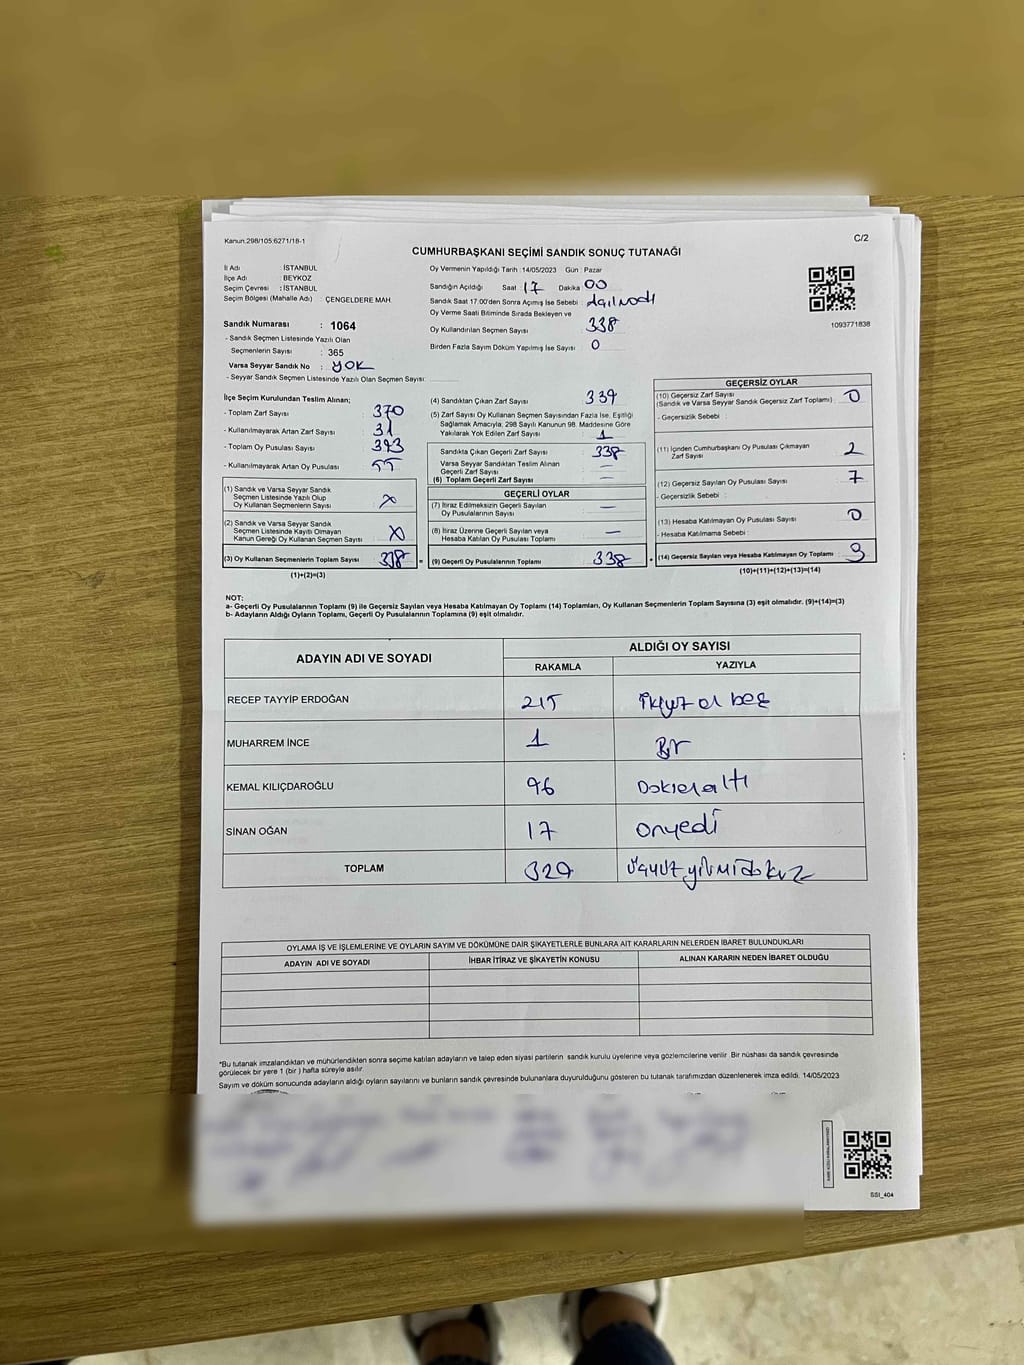 Kanun.298/105;6271/18-1
C/2
CUMHURBAŞKANI SEÇİMİ SANDIK SONUÇ TUTANAĞI
İl Adı : İSTANBUL
İlçe Adı : BEYKOZ
Seçim Çevresi : İSTANBUL
Seçim Bölgesi (Mahalle Adı) : ÇENGELDERE MAH.
Sandık Numarası : 1064
- Sandık Seçmen Listesinde Yazılı Olan
Seçmenlerin Sayısı : 365
Varsa Seyyar Sandık No : YOK
- Seyyar Sandık Seçmen Listesinde Yazılı Olan Seçmen Sayısı
Oy Vermenin Yapıldığı Tarih : 14/05/2023 Gün : Pazar
Sandığın Açıldığı Saat 17 Dakika 00
Sandık Saat 17.00'den Sonra Açılmış İse Sebebi : Açılmadı
Oy Verme Saati Bitiminde Sırada Bekleyen ve
Oy Kullandırılan Seçmen Sayısı 338
Birden Fazla Sayım Döküm Yapılmış İse Sayısı 0
1093771838
İlçe Seçim Kurulundan Teslim Alınan;
- Toplam Zarf Sayısı 370
- Kullanılmayarak Artan Zarf Sayısı 31
- Toplam Oy Pusulası Sayısı 393
- Kullanılmayarak Artan Oy Pusulası 55
(1) Sandık ve Varsa Seyyar Sandık
Seçmen Listesinde Yazılı Olup
Oy Kullanan Seçmenlerin Sayısı X
(2) Sandık ve Varsa Seyyar Sandık
Seçmen Listesinde Kayıtlı Olmayan
Kanun Gereği Oy Kullanan Seçmen Sayısı X
(3) Oy Kullanan Seçmenlerin Toplam Sayısı 338 =
(1)+(2)=(3)
(4) Sandıktan Çıkan Zarf Sayısı 339
(5) Zarf Sayısı Oy Kullanan Seçmen Sayısından Fazla İse, Eşitliği
Sağlamak Amacıyla; 298 Sayılı Kanunun 98. Maddesine Göre
Yakılarak Yok Edilen Zarf Sayısı 1
Sandıkta Çıkan Geçerli Zarf Sayısı 338
Varsa Seyyar Sandıktan Teslim Alınan
Geçerli Zarf Sayısı —
(6) Toplam Geçerli Zarf Sayısı —
GEÇERLİ OYLAR
(7) İtiraz Edilmeksizin Geçerli Sayılan
Oy Pusulalarının Sayısı —
(8) İtiraz Üzerine Geçerli Sayılan veya
Hesaba Katılan Oy Pusulası Toplamı —
(9) Geçerli Oy Pusulalarının Toplamı 338 +
GEÇERSİZ OYLAR
(10) Geçersiz Zarf Sayısı
(Sandık ve Varsa Seyyar Sandık Geçersiz Zarf Toplamı) 0
- Geçersizlik Sebebi :
(11) İçinden Cumhurbaşkanı Oy Pusulası Çıkmayan
Zarf Sayısı 2
(12) Geçersiz Sayılan Oy Pusulası Sayısı 7
- Geçersizlik Sebebi :
(13) Hesaba Katılmayan Oy Pusulası Sayısı 0
- Hesaba Katılmama Sebebi :
(14) Geçersiz Sayılan veya Hesaba Katılmayan Oy Toplamı 9
(10)+(11)+(12)+(13)=(14)
NOT:
a- Geçerli Oy Pusulalarının Toplamı (9) ile Geçersiz Sayılan veya Hesaba Katılmayan Oy Toplamı (14) Toplamları, Oy Kullanan Seçmenlerin Toplam Sayısına (3) eşit olmalıdır. (9)+(14)=(3)
b- Adayların Aldığı Oyların Toplamı, Geçerli Oy Pusulalarının Toplamına (9) eşit olmalıdır.
ADAYIN ADI VE SOYADI
ALDIĞI OY SAYISI
RAKAMLA YAZIYLA
RECEP TAYYİP ERDOĞAN 215 İkiyüz on beş
MUHARREM İNCE 1 Bir
KEMAL KILIÇDAROĞLU 96 Doksanaltı
SİNAN OĞAN 17 onyedi
TOPLAM 329 Üçyüzyirmidokuz
OYLAMA İŞ VE İŞLEMLERİNE VE OYLARIN SAYIM VE DÖKÜMÜNE DAİR ŞİKAYETLERLE BUNLARA AİT KARARLARIN NELERDEN İBARET BULUNDUKLARI
ADAYIN ADI VE SOYADI İHBAR İTİRAZ VE ŞİKAYETİN KONUSU ALINAN KARARIN NEDEN İBARET OLDUĞU
*Bu tutanak imzalandıktan ve mühürlendikten sonra seçime katılan adayların ve talep eden siyasi partilerin sandık kurulu üyelerine veya gözlemcilerine verilir. Bir nüshası da sandık çevresinde
görülecek bir yere 1 (bir) hafta süreyle asılır.
Sayım ve döküm sonucunda adayların aldığı oyların sayılarını ve bunların sandık çevresinde bulunanlara duyurulduğunu gösteren bu tutanak tarafımızdan düzenlenerek imza edildi. 14/05/2023
SSI_404